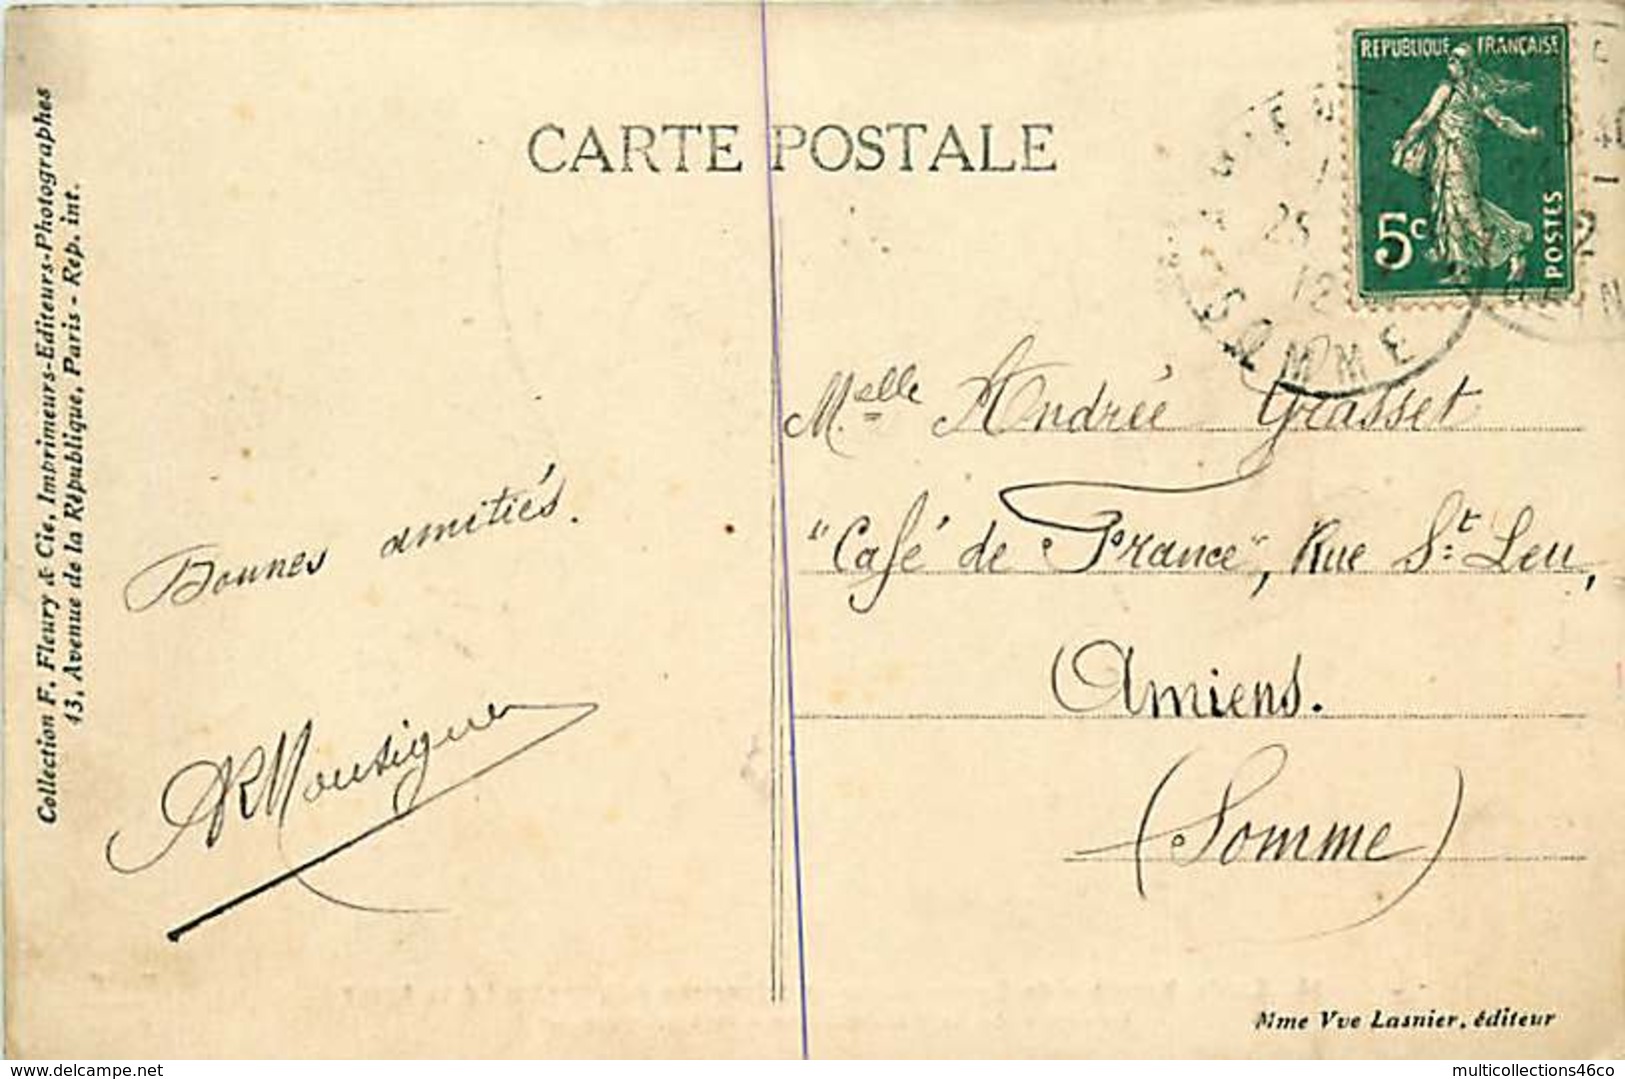 CARTE POSTALE
REPUBLIQUE FRANÇAISE
5c
POSTES
SOMME
Collection F. Fleury & Cie, Imprimeurs-Editeurs-Photographes
43, Avenue de la République, Paris - Rep. int.
Bonnes amitiés.
Melle Andréé Grasset
"Café de France", Rue St Leu,
Amiens.
(Somme)
Mme Vve Lasnier, éditeur
delcampe.net
multicollections46co